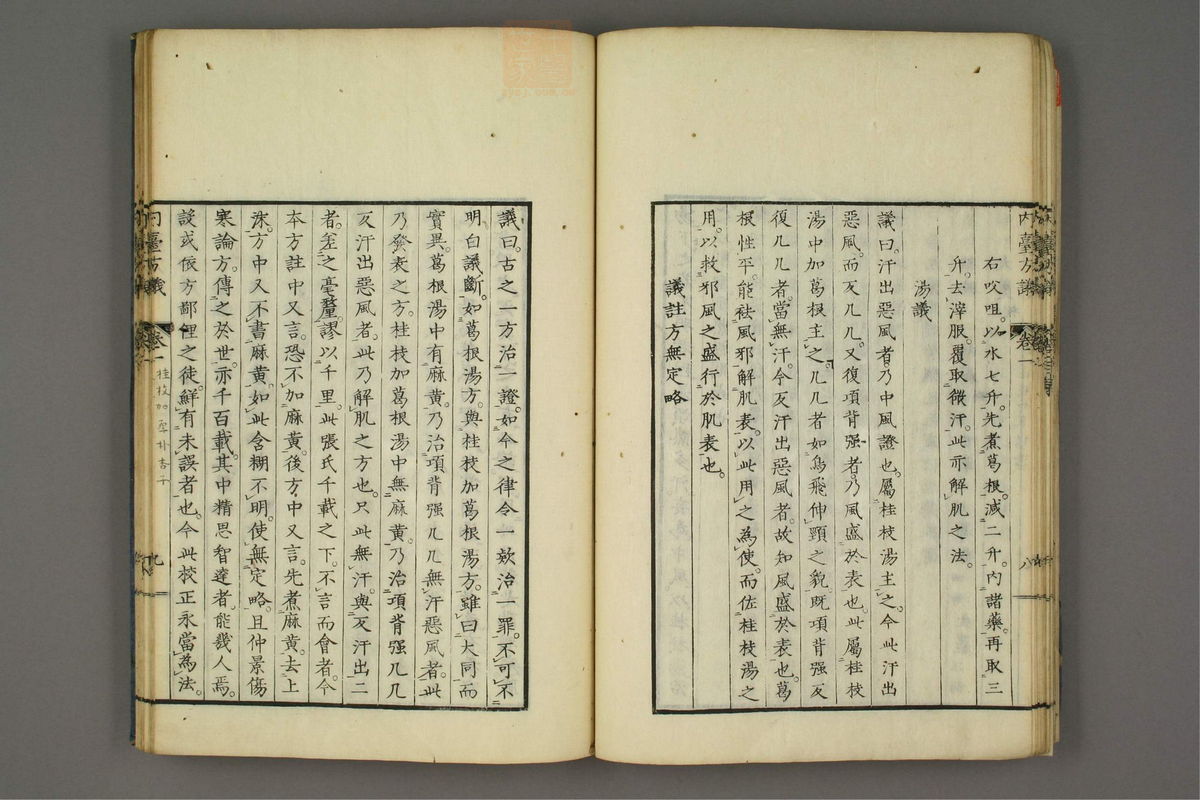 右㕮咀。以水七升。先煮葛根。減二升。內諸藥。再取三
升。去滓服。覆取微汗。此亦解肌之法。
湯議
議曰。汗出惡風者。乃中風證也。屬桂枝湯主之。今此汗出
惡風。而反几几。又復項背强者。乃風盛於表也。此屬桂枝
湯中加葛根主之。几几者。如鳥飛伸頸之貌。既項背强反
復几几者。當無汗。今反汗出惡風者。故知風盛於表也。葛
根性平。能袪風邪解肌表。以此用之為使。而佐桂枝湯之
用。以救邪風之盛行於肌表也。
議註方無定略
議曰。古之一方治一證。如今之律令一欵治一罪。不可不
明白議斷。如葛根湯方。與桂枝加葛根湯方。雖曰大同而
實異。葛根湯中有麻黄。乃治項背强几几無汗惡風者。此
乃發表之方。桂枝加葛根湯中無麻黄。乃治項背强几几
反汗出惡風者。此乃解肌之方也。只此無汗。與反汗出二
者。差之毫釐。謬以千里。此張氏千載之下。不言而會者。今
本方註中又言。恐不加麻黄。後方中又言。先煮麻黄。去上
沫。方中又不書麻黄。如此含糊不明。使無定略。且仲景傷
寒論方。傳之於世。亦千百載。其中精思智達者。能幾人焉。
設或依方鄙俚之徒。鮮有未誤者也。今此校正永當為法。
內臺方議
卷一
八
內臺方議
卷一
桂枝加厚朴杏子
九